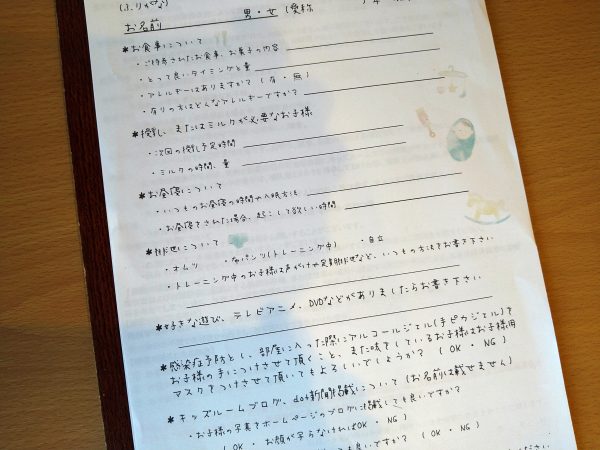 (ふりがな)
お名前　　　　　男・女 (愛称
*お食事について
・ご持参されたお食事、お菓子の内容
・とって良いタイミングと量
・アレルギーはありますか？ (有・無)
・有りの方はどんなアレルギーですか？
*授乳、またはミルクが必要なお子様
・次回の授乳予定時間
・ミルクの時間、量
*お昼寝について
・いつものお昼寝の時間や入眠方法
・お昼寝をされた場合、起こして欲しい時間
*排泄について
・オムツ　・布パンツ(トレーニング中)　・自立
・トレーニング中のお子様は声がけや定期排泄など、いつもの方法をお書き下さい
*好きな遊び、テレビアニメ、DVDなどがありましたらお書き下さい
*感染症予防とし、部屋に入った際にアルコールジェル(手ピカジェル)を
お子様の手につけさせて頂くこと、また咳をしているお子様はお子様用
マスクをつけさせて頂いてもよろしいでしょうか？ (OK・NG)
*キッズルームブログ、dot新聞掲載について(お名前は載せません)
・お子様の写真をホームページのブログに掲載しても良いですか？
(OK・お顔が写らなければOK・NG)
ても良いですか？ (OK・NG)
ください